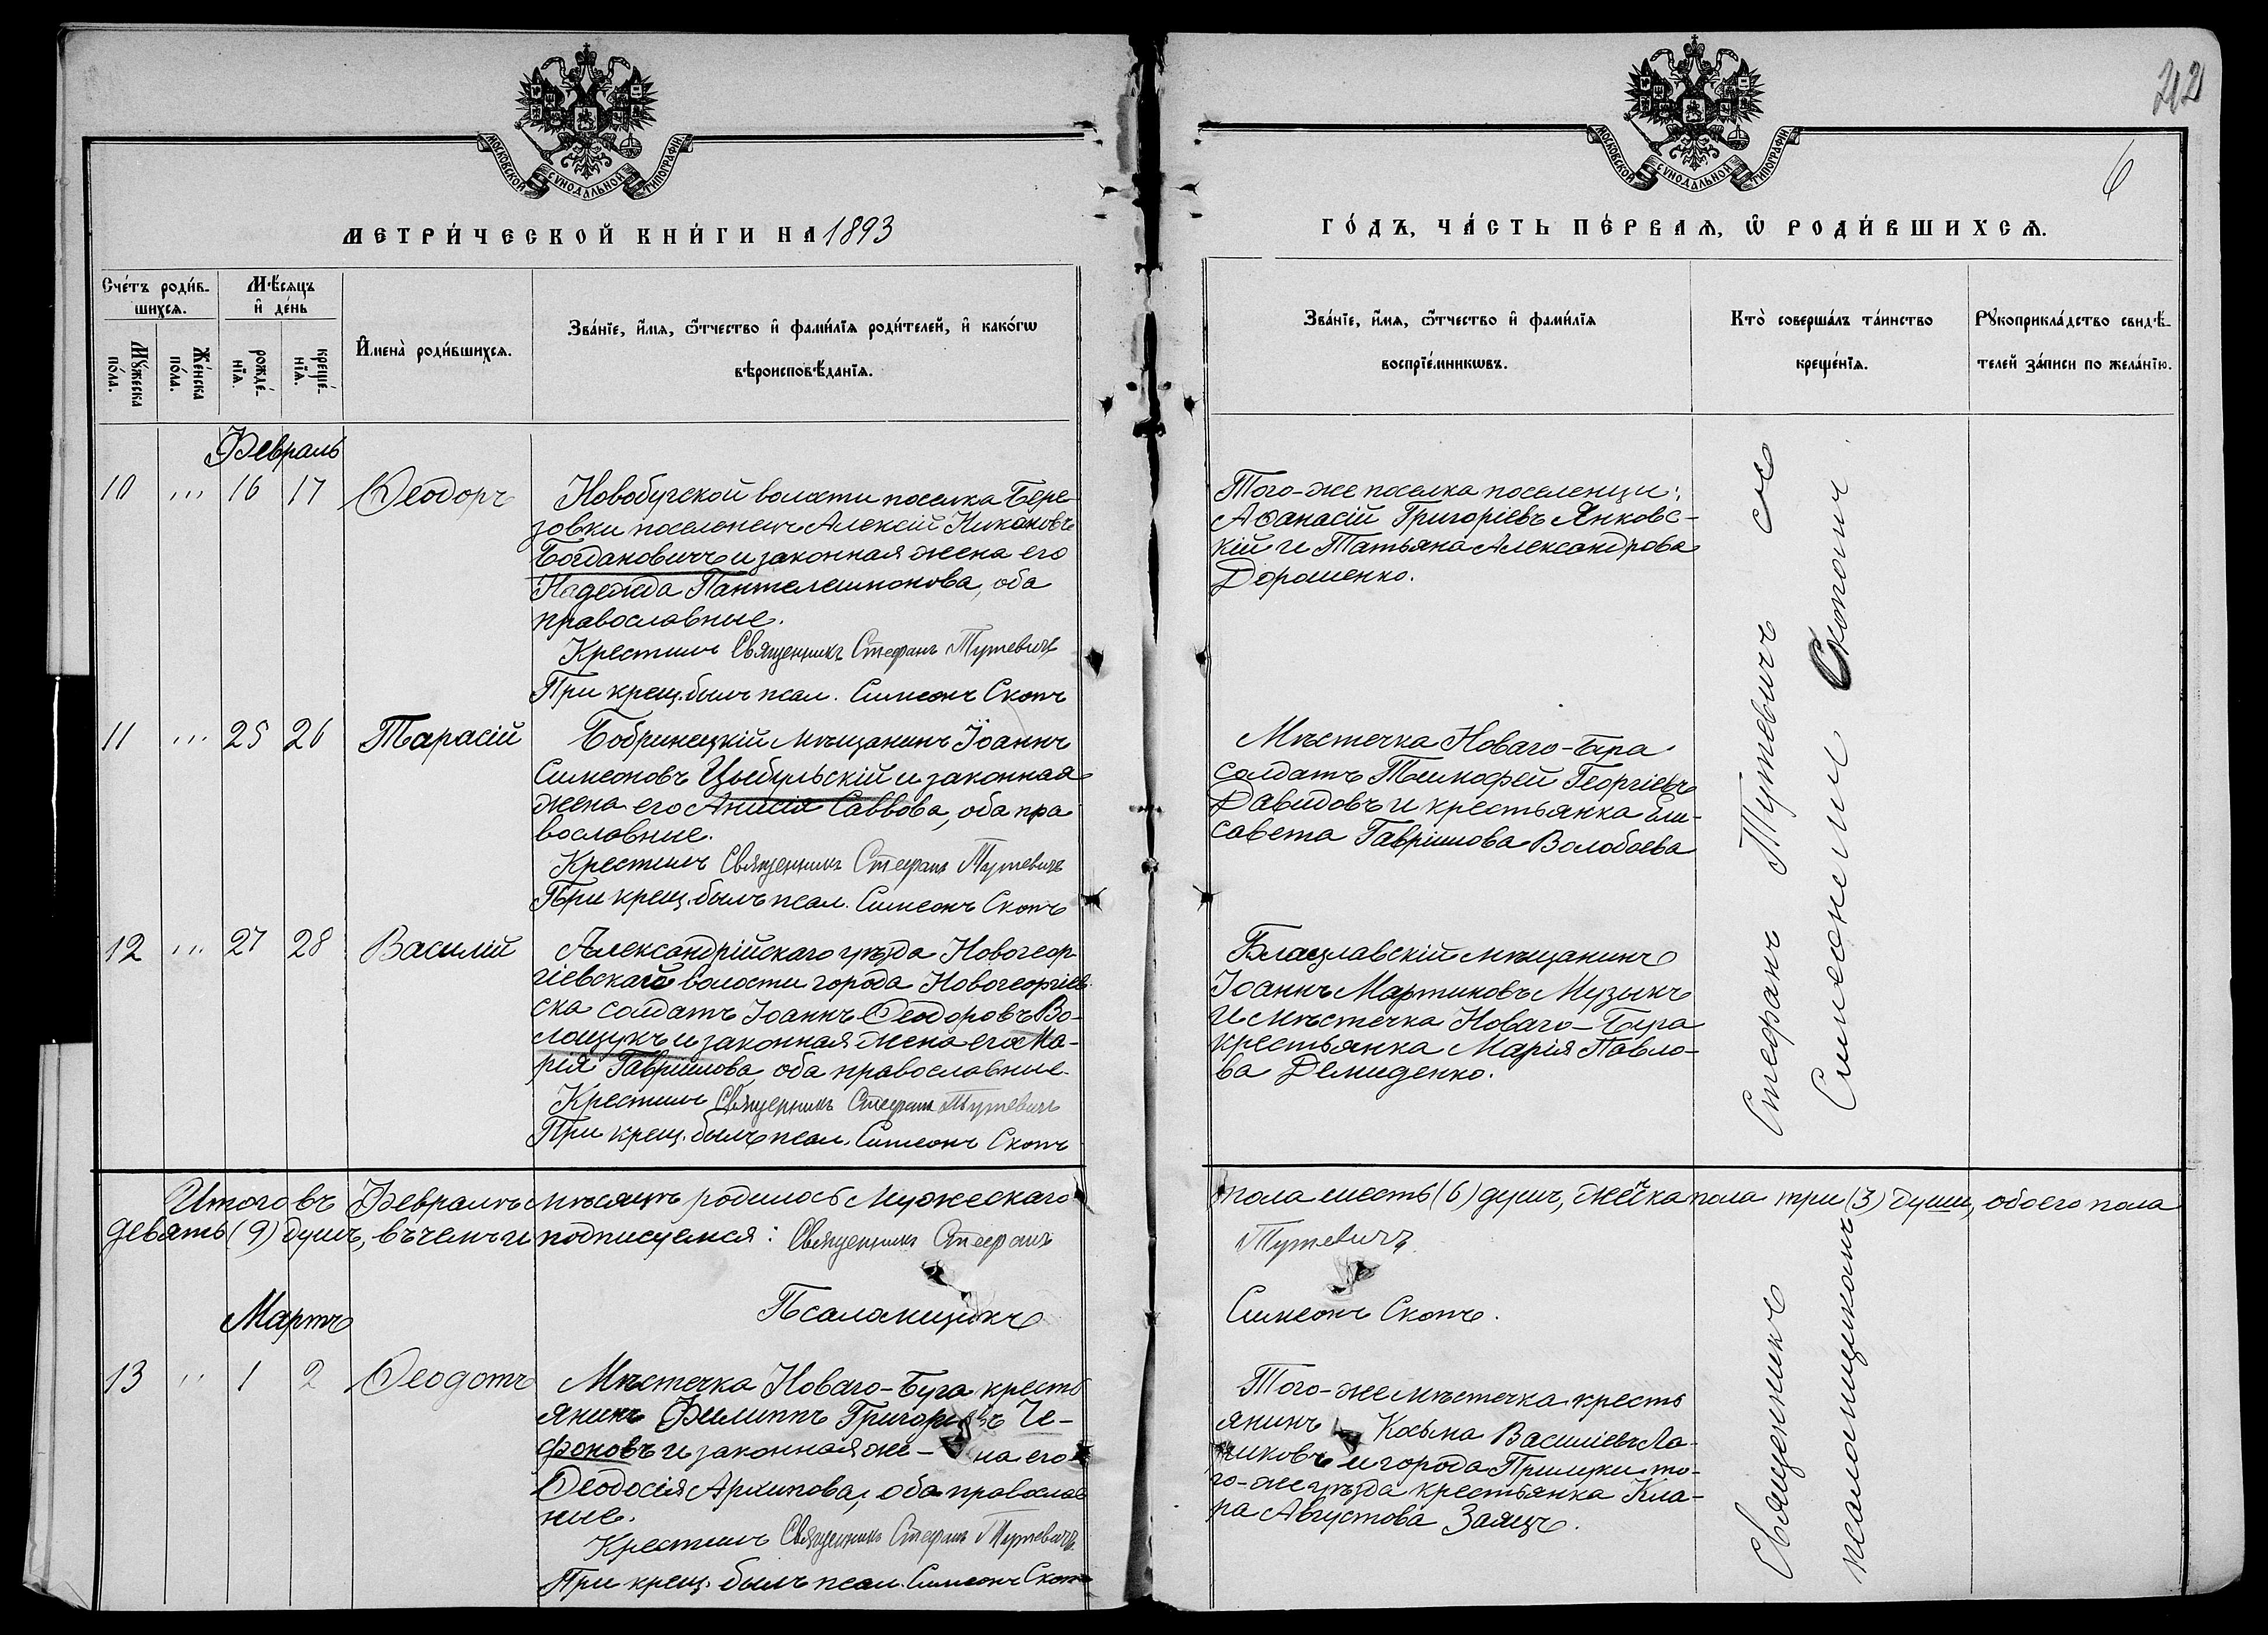 МОСКОВСКОЙ СУНОДАЛЬНОЙ ТИПОГРАФІИ
МЕТРИ́ЧЕСКОЙ КНИ́ГИ НА 1893
Сче́тъ роди́в-
шихсѧ.
Мѣ́сѧцъ
и҆ де́нь
Мꙋ́жеска
по́ла.
Же́нска
по́ла.
рожде́-
нїѧ.
креще́-
нїѧ.
И҆мена̀ роди́вшихсѧ.
Зва́нїе, и҆́мѧ, ѻ҆́тчество и҆ фами́лїѧ роди́телей, и҆ како́гѡ
вѣроисповѣ́данїѧ.
Февраль
10 ,,, 16 17 Ѳеодоръ
Новобугской волости поселка Бере-
зовки поселенецъ Алексій Никановъ
Богдановичъ и законная жена его
Надежда Пантелеимонова, оба
православные.
Крестилъ Священникъ Стефанъ Тутевичъ
При крещ. былъ псал. Симеонъ Скопъ
11 ,,, 25 26 Тарасій
Бобринецкій мѣщанинъ Іоаннъ
Симеоновъ Цыбульскій и законная
жена его Анисія Саввова, оба пра
вославные.
Крестилъ Священникъ Стефанъ Тутевичъ
При крещ. былъ псал. Симеонъ Скопъ
12 ,,, 27 28 Василій
Александрійскаго уѣзда Новогеор-
гіевской волости города Новогеоргіев-
ска солдатъ Іоаннъ Ѳеодоровъ Во-
лощукъ и законная жена его Ма-
рія Гавріилова, оба православные.
Крестилъ Священникъ Стефанъ Тутевичъ
При крещ. былъ псал. Симеонъ Скопъ
Итого въ Февралѣ мѣсяцѣ родилось Мужескаго
девять (9) душъ, въ чемъ и подписуемся: Священникъ Стефанъ
Псаломщикъ
Мартъ
13 ,, 1 2 Ѳеодотъ
Мѣстечка Новаго-Буга кресть
янинъ Филиппъ Григорьевъ Че-
фоновъ и законная же- на его
Ѳеодосія Архипова, оба православ
ные.
Крестилъ Священникъ Стефанъ Тутевичъ
При крещ. былъ псал. Симеонъ Скопъ
212
6
МОСКОВСКОЙ СУНОДАЛЬНОЙ ТИПОГРАФІИ
ГО́ДЪ, ЧА́СТЬ ПЕ́РВАѦ, Ѽ РОДИ́ВШИХСѦ.
Зва́нїе, и҆́мѧ, ѻ҆́тчество и҆ фами́лїѧ
воспрїе́мникѡвъ.
Кто̀ соверша́лъ та́инство
креще́нїѧ.
Рꙋкоприкла́дство свидѣ́-
телей за́писи по жела́нїю.
Того-же поселка поселенцы:
Аѳанасій Григоріевъ Янковс-
кій и Татьяна Александрова
Дорошенко.
Мѣстечка Новаго-Буга
солдатъ Тимофей Георгіевъ
Давидовъ и крестьянка Ели-
савета Гавріилова Волобоева
Брацлавскій мѣщанинъ
Іоаннъ Мартиновъ Музыкъ
и мѣстечка Новаго-Буга
крестьянка Марія Павло-
ва Демиденко.
пола шесть (6) душъ, жен́ска пола три (3) души, обоего пола
Тутевичъ
Симеонъ Скопъ.
Того-же мѣстечка кресть
янинъ Косьма Василіевъ
и города Прилуки то-
го-же уѣзда крестьянка Кла-
ра Августова Заяцъ.
Священникъ Стефанъ Тутевичъ съ
псаломщикомъ Симеономъ Скопомъ.